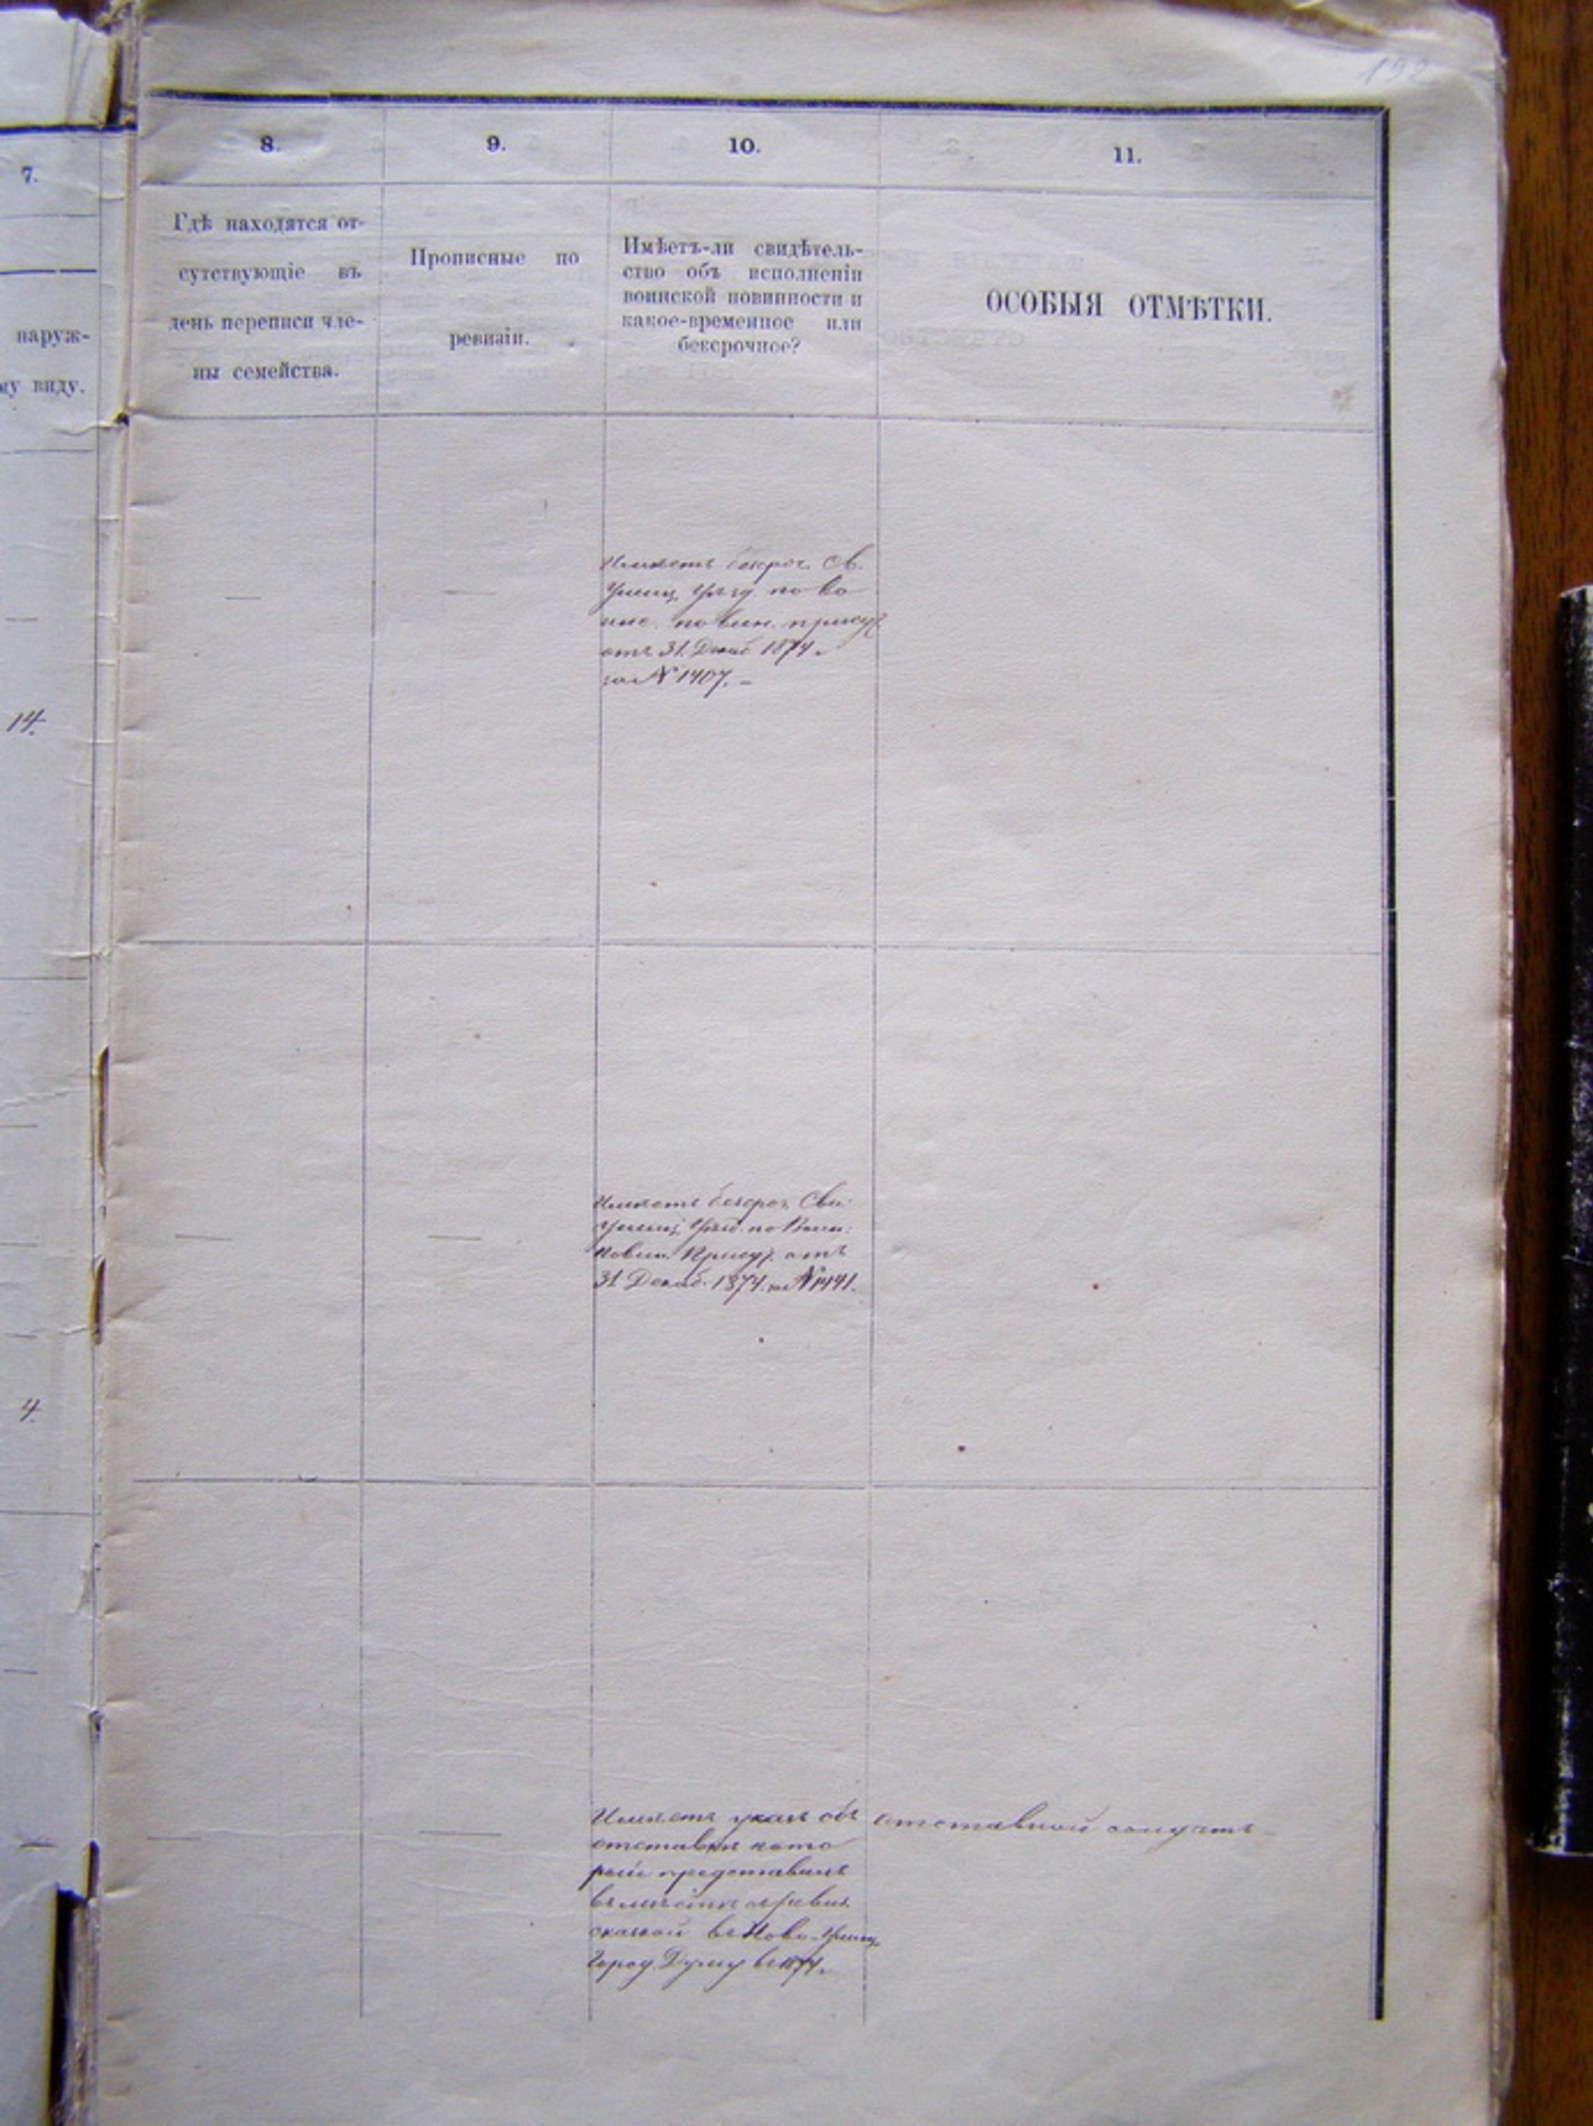 192
7.
8.
9.
10.
11.
наруж-
му виду.
Гдѣ находятся от-
сутствующіе въ
день переписи чле-
ны семейства.
Прописные по
ревизіи.
Имѣетъ-ли свидѣтель-
ство объ исполненіи
воинской повинности и
какое-временное или
безсрочное?
ОСОБЫЯ ОТМѢТКИ.
14.
Имѣетъ безсроч. Св.
по во
инс. повин. присут.
отъ 31. Декаб 1874.
за № 1407. –
4.
Имѣетъ безсроч. Сви:
по Воин:
Повин. Присут. отъ
31 Декаб. 1874. за № 1441.
Имѣетъ указъ объ
отставкѣ кото
рый представилъ
сказкой въ Ново-
Город. Думу въ 1874.
отставной солдатъ